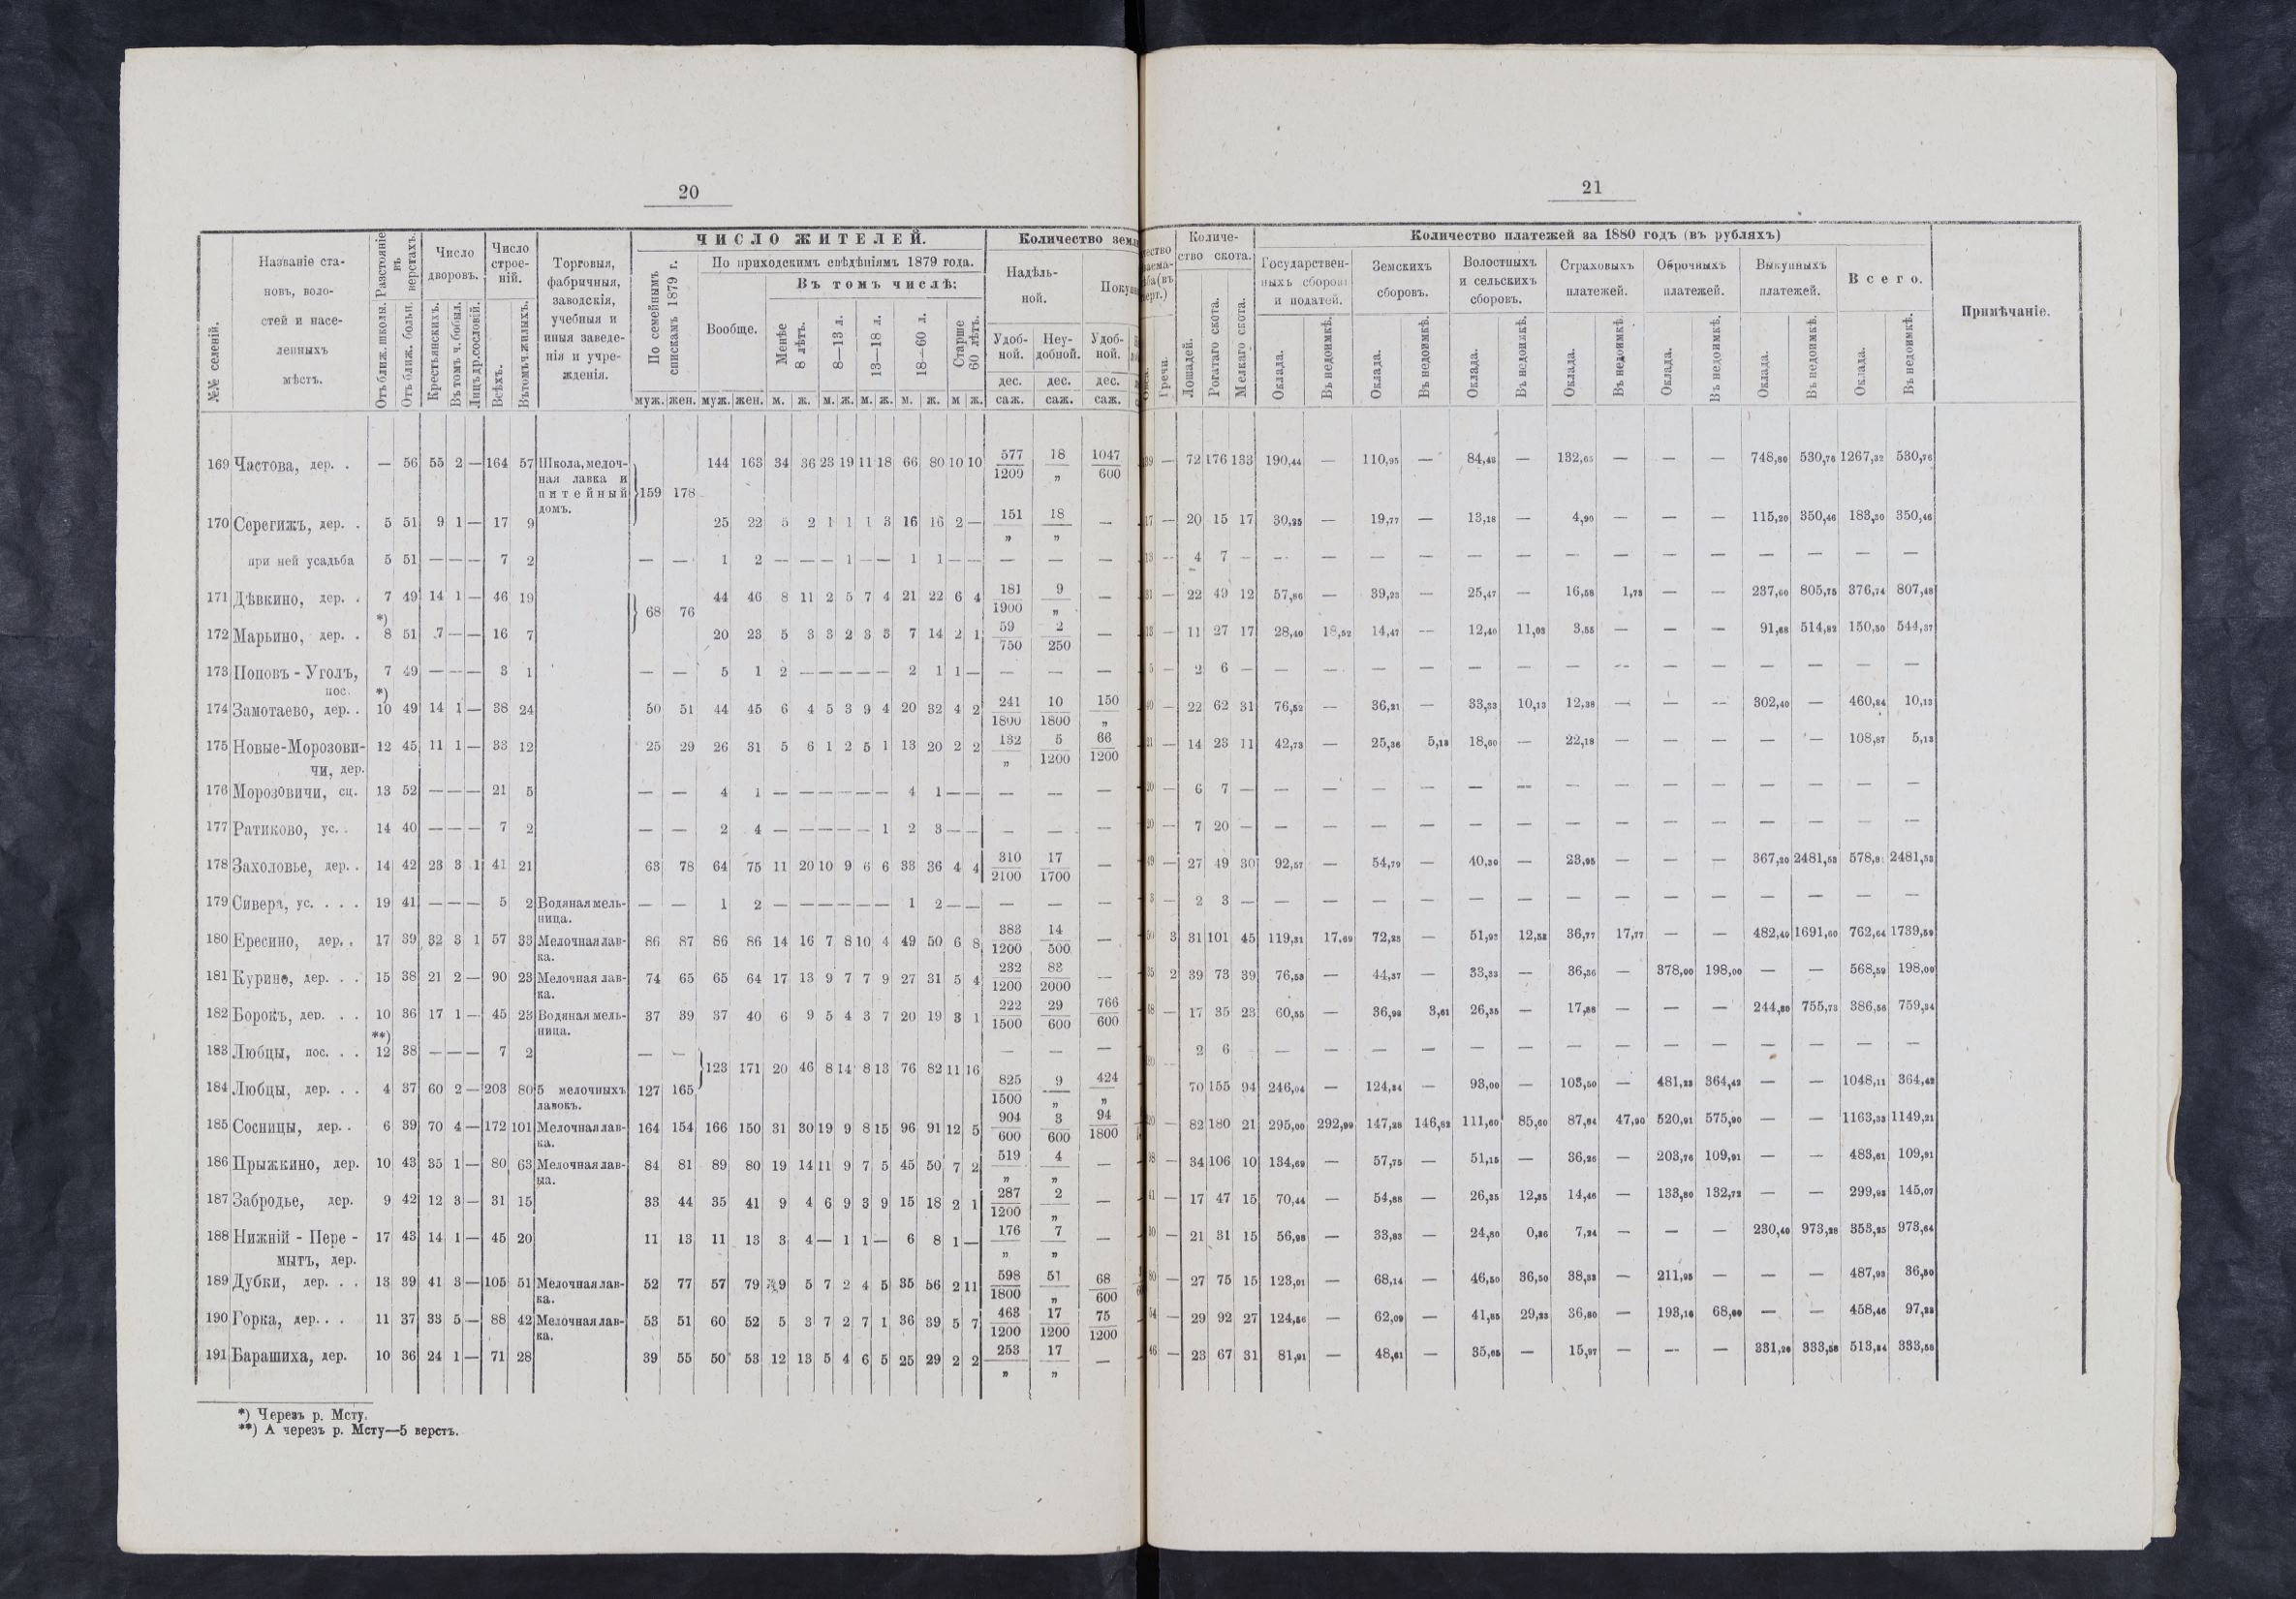 20
№№ селеній.
Названіе становъ, волостей и населенныхъ мѣстъ.
Разстояніе въ верстахъ.
Отъ ближ. школы.
Отъ ближ. больн.
Число дворовъ.
Крестьянскихъ.
Въ томъ ч. бобыл.
Лицъ др. сословій.
Число строеній.
Всѣхъ.
Въ томъ ч. жилыхъ.
Торговыя, фабричныя, заводскія, учебныя и иныя заведенія и учрежденія.
ЧИСЛО ЖИТЕЛЕЙ.
По семейнымъ спискамъ 1879 г.
По приходскимъ свѣдѣніямъ 1879 года.
Вообще.
Въ томъ числѣ:
Менѣе 8 лѣтъ.
8—13 л.
13—18 л.
18—60 л.
Старше 60 лѣтъ.
муж. жен. муж. жен. м. ж. м. ж. м. ж. м. ж. м ж.
Количество
Надѣльной.
Удобной. Неудобной. Удобной.
дес. дес. дес.
саж. саж. саж.
169 Частова, дер. . — 56 55 2 — 164 57 Школа, мелочная лавка и питейный домъ. 159 178 144 163 34 36 23 19 11 18 66 80 10 10 577/1200 18/„ 1047/600
170 Серегижъ, дер. . 5 51 9 1 — 17 9 25 22 5 2 1 1 1 3 16 16 2 — 151/„ 18/„ —
при ней усадьба 5 51 — — — 7 2 — — 1 2 — — — 1 — — 1 1 — — — — —
171 Дѣвкино, дер. . 7 49 14 1 — 46 19 68 76 44 46 8 11 2 5 7 4 21 22 6 4 181/1900 9/„ —
172 Марьино, дер. . *) 8 51 7 — — 16 7 20 23 5 3 3 2 3 3 7 14 2 1 59/750 2/250 —
173 Поповъ - Уголъ, пос. 7 49 — — — 3 1 — — 5 1 2 — — — — — 2 1 1 — — — —
174 Замотаево, дер. . *) 10 49 14 1 — 38 24 50 51 44 45 6 4 5 3 9 4 20 32 4 2 241/1800 10/1800 150/„
175 Новые-Морозовичи, дер. 12 45 11 1 — 33 12 25 29 26 31 5 6 1 2 5 1 13 20 2 2 132/„ 5/1200 66/1200
176 Морозовичи, сц. 13 52 — — — 21 5 — — 4 1 — — — — — — 4 1 — — — — —
177 Ратиково, ус. . 14 40 — — — 7 2 — — 2 4 — — — — — 1 2 3 — — — — —
178 Захоловье, дер. . 14 42 23 3 1 41 21 63 78 64 75 11 20 10 9 6 6 33 36 4 4 310/2100 17/1700 —
179 Сивера, ус. . . . 19 41 — — — 5 2 Водяная мельница. — — 1 2 — — — — — — 1 2 — — — — —
180 Ересино, дер. . 17 39 32 3 1 57 33 Мелочная лавка. 86 87 86 86 14 16 7 8 10 4 49 50 6 8 383/1200 14/500 —
181 Курино, дер. . . 15 38 21 2 — 90 23 Мелочная лавка. 74 65 65 64 17 13 9 7 7 9 27 31 5 4 232/1200 83/2000 —
182 Борокъ, дер. . . 10 36 17 1 — 45 23 Водяная мельница. 37 39 37 40 6 9 5 4 3 7 20 19 3 1 222/1500 29/600 766/600
183 Любцы, пос. . . **) 12 38 — — — 7 2 — — 123 171 20 46 8 14 8 13 76 82 11 16 — — —
184 Любцы, дер. . . 4 37 60 2 — 203 80 5 мелочныхъ лавокъ. 127 165 825/1500 9/„ 424/„
185 Сосницы, дер. . 6 39 70 4 — 172 101 Мелочная лавка. 164 154 166 150 31 30 19 9 8 15 96 91 12 5 904/600 3/600 94/1800
186 Прыжкино, дер. 10 43 35 1 — 80 63 Мелочная лавыа. 84 81 89 80 19 14 11 9 7 5 45 50 7 2 519/„ 4/„ —
187 Забродье, дер. 9 42 12 3 — 31 15 33 44 35 41 9 4 6 9 3 9 15 18 2 1 287/1200 2/„ —
188 Нижній - Пере - мытъ, дер. 17 43 14 1 — 45 20 11 13 11 13 3 4 — 1 1 — 6 8 1 — 176/„ 7/„ —
189 Дубки, дер. . . 13 39 41 3 — 105 51 Мелочная лавка. 52 77 57 79 9 5 7 2 4 5 35 56 2 11 598/1800 51/„ 68/600
190 Горка, дер. . . 11 37 33 5 — 88 42 Мелочная лавка. 53 51 60 52 5 3 7 2 7 1 36 39 5 7 463/1200 17/1200 75/1200
191 Барашиха, дер. 10 36 24 1 — 71 28 39 55 50 53 12 13 5 4 6 5 25 29 2 2 253/„ 17/„ —
*) Черезъ р. Мсту.
**) А черезъ р. Мсту—5 верстъ.
21
Гречи.
Количество скота.
Лошадей.
Рогатаго скота.
Мелкаго скота.
Количество платежей за 1880 годъ (въ рубляхъ)
Государственныхъ сборовъ и податей.
Земскихъ сборовъ.
Волостныхъ и сельскихъ сборовъ.
Страховыхъ платежей.
Оброчныхъ платежей.
Выкупныхъ платежей.
Всего.
Оклада. Въ недоимкѣ. Оклада. Въ недоимкѣ. Оклада. Въ недоимкѣ. Оклада. Въ недоимкѣ. Оклада. Въ недоимкѣ. Оклада. Въ недоимкѣ. Оклада. Въ недоимкѣ.
Примѣчаніе.
72 176 133 190,44 — 110,95 — 84,48 — 132,65 — — — 748,80 530,76 1267,32 530,76
— 20 15 17 30,25 — 19,77 — 13,18 — 4,90 — — — 115,20 350,46 183,30 350,46
— 4 7 — — — — — — — — — — — — — — —
— 22 49 12 57,86 — 39,23 — 25,47 — 16,58 1,73 — — 237,60 805,75 376,74 807,48
— 11 27 17 28,40 18,52 14,47 — 12,40 11,03 3,55 — — — 91,68 514,82 150,50 544,37
— 2 6 — — — — — — — — — — — — — — —
— 22 62 31 76,52 — 36,21 — 33,33 10,13 12,38 — — — 302,40 — 460,84 10,13
— 14 23 11 42,73 — 25,36 5,13 18,60 — 22,18 — — — — — 108,87 5,13
— 6 7 — — — — — — — — — — — — — — —
— 7 20 — — — — — — — — — — — — — — —
— 27 49 30 92,57 — 54,79 — 40,30 — 23,95 — — — 367,20 2481,53 578,8 2481,53
— 2 3 — — — — — — — — — — — — — — —
3 31 101 45 119,31 17,69 72,23 — 51,93 12,53 36,77 17,77 — — 482,40 1691,60 762,64 1739,59
2 39 73 39 76,53 — 44,37 — 33,33 — 36,36 — 378,00 198,00 — — 568,59 198,00
— 17 35 23 60,55 — 36,98 3,61 26,35 — 17,88 — — — 244,80 755,73 386,56 759,34
2 6 — — — — — — — — — — — — — —
70 155 94 246,04 — 124,34 — 93,00 — 103,50 — 481,23 364,42 — — 1048,11 364,42
— 82 180 21 295,00 292,99 147,28 146,82 111,60 85,60 87,64 47,90 520,91 575,90 — — 1163,33 1149,21
— 34 106 10 134,69 — 57,75 — 51,15 — 36,26 — 203,76 109,91 — — 483,61 109,91
— 17 47 15 70,44 — 54,88 — 26,35 12,35 14,46 — 133,80 132,72 — — 299,93 145,07
— 21 31 15 56,98 — 33,83 — 24,80 0,36 7,24 — — — 230,40 973,28 353,25 973,64
— 27 75 15 123,01 — 68,14 — 46,50 36,50 38,33 — 211,95 — — — 487,93 36,50
— 29 92 27 124,56 — 62,09 — 41,85 29,23 36,80 — 193,16 68,00 — — 458,46 97,23
— 23 67 31 81,91 — 48,61 — 35,65 — 15,97 — — — 331,20 333,58 513,34 333,58